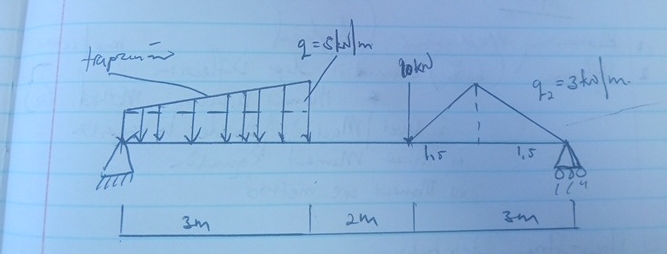 q=5kN/m
10kN
q2=3kN/m
1,5
1,5
3m
2m
3m